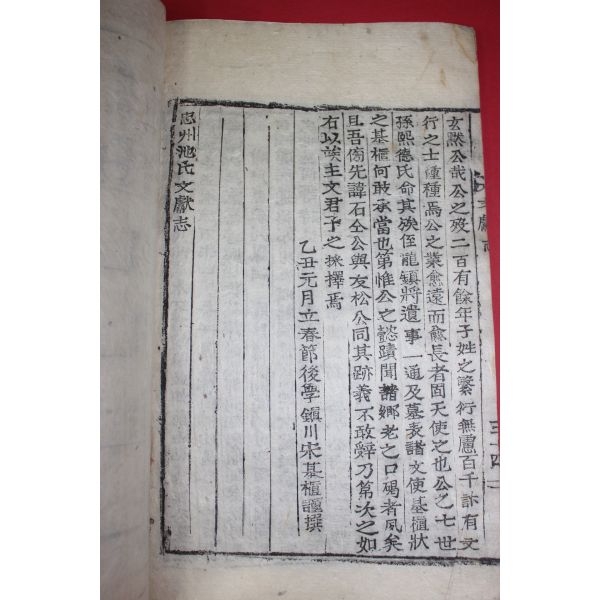 玄黙公哉公之歿二百有餘年子姓之繁衍無慮百千計有文
行之士種種焉公之業愈遠而愈長者固天使之也公之七世
孫熙德氏命其族侄龍鎮將遺事一通及墓表諸文使基樞狀
之基樞何敢承當也第惟公之懿蹟聞諸鄉老之口碣者夙矣
且吾傍先諱石仝公與友松公同其跡義不敢辭乃第次之如
右以竢主文君子之採擇焉
乙丑元月立春節後學鎮川宋基樞謹撰
忠州池氏文獻志
文獻志
三十四